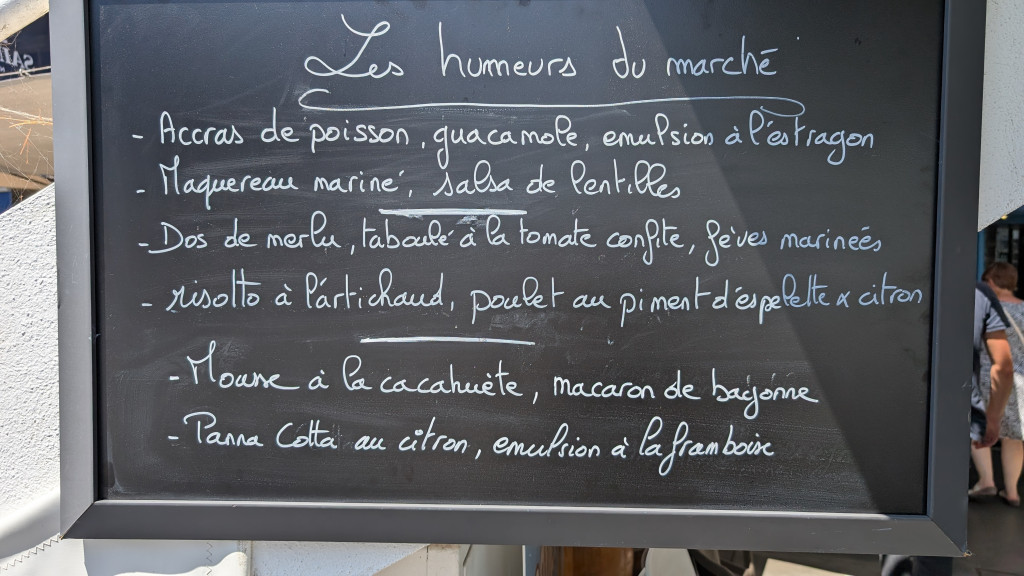 Les humeurs du marché
- Accras de poisson, guacamole, emulsion à l'estragon
- Maquereau mariné, salsa de lentilles
- Dos de merlu, taboulé à la tomate confite, fèves marineés
- risotto à l'artichaud, poulet au piment d'espelette & citron
- Mousse à la cacahuète, macaron de bayonne
- Panna Cotta au citron, emulsion à la framboise